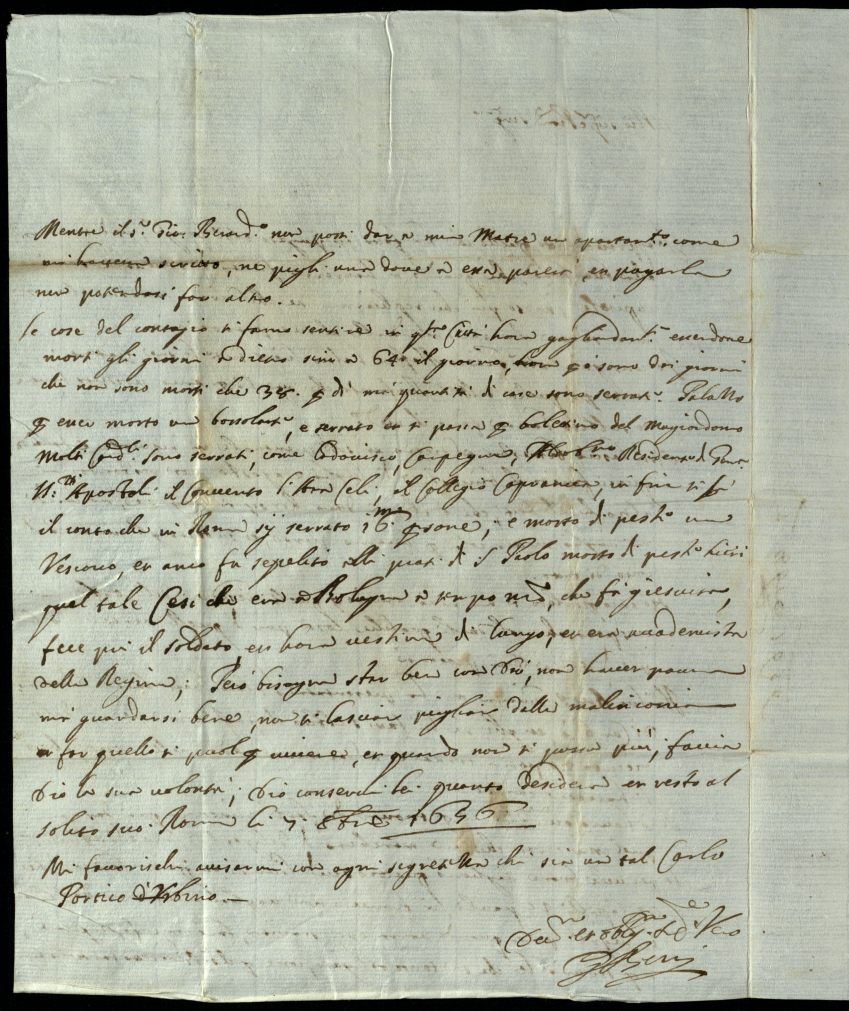 Mentre il s.r Gio: Berard.o non possi dar à mia Matre un apartant.o come
mi haueua scritto, ne pigli una doue à essa parerà, en pagarla
non potendosi far altro.
Le cose del contagio si fanno sentire in q.sta Città hora gagliardant.e essendone
morti gli giorni à dietro sino à 64 il giorno, hora sono doi giorni
che non sono morti che 38. di ma quantità di case sono serrate. Palazzo
esser morto un bossolante, è serrato et si passa bolettino del magiordomo
Molti Card.li sono serrati, come Lodouisio, Carpegna, Residenza di
S.ti Apostoli il Conuento l'Ara Celi, il Collegio Capranica, in fine si fà
il conto che in Roma sij serrato 16 m.a persone; è morto di peste un
Vescouo, et anco fu sepelito alli prati di S Paolo morto di peste hieri
quel tale Cesi che era à Bologna à tempo mio, che fù giesuita,
fece poi il soldato, et hora uestiua di lungo, et era accademista
della Regina; Però bisogna star ben con Dio, non hauer paura
mà guardarsi bene, non si lasciar pigliar dalla malinconia
e far quello si puol uiuere, et quando non si possa più, faccia
Dio la sua uolontà; Dio conserui lei quanto desidera et resto al
solito suo. Roma li 7: 8bre 1656
Mi fauorischi auisarmi con ogni segretezza chi sia un tal Carlo
Portico d'Vrbino